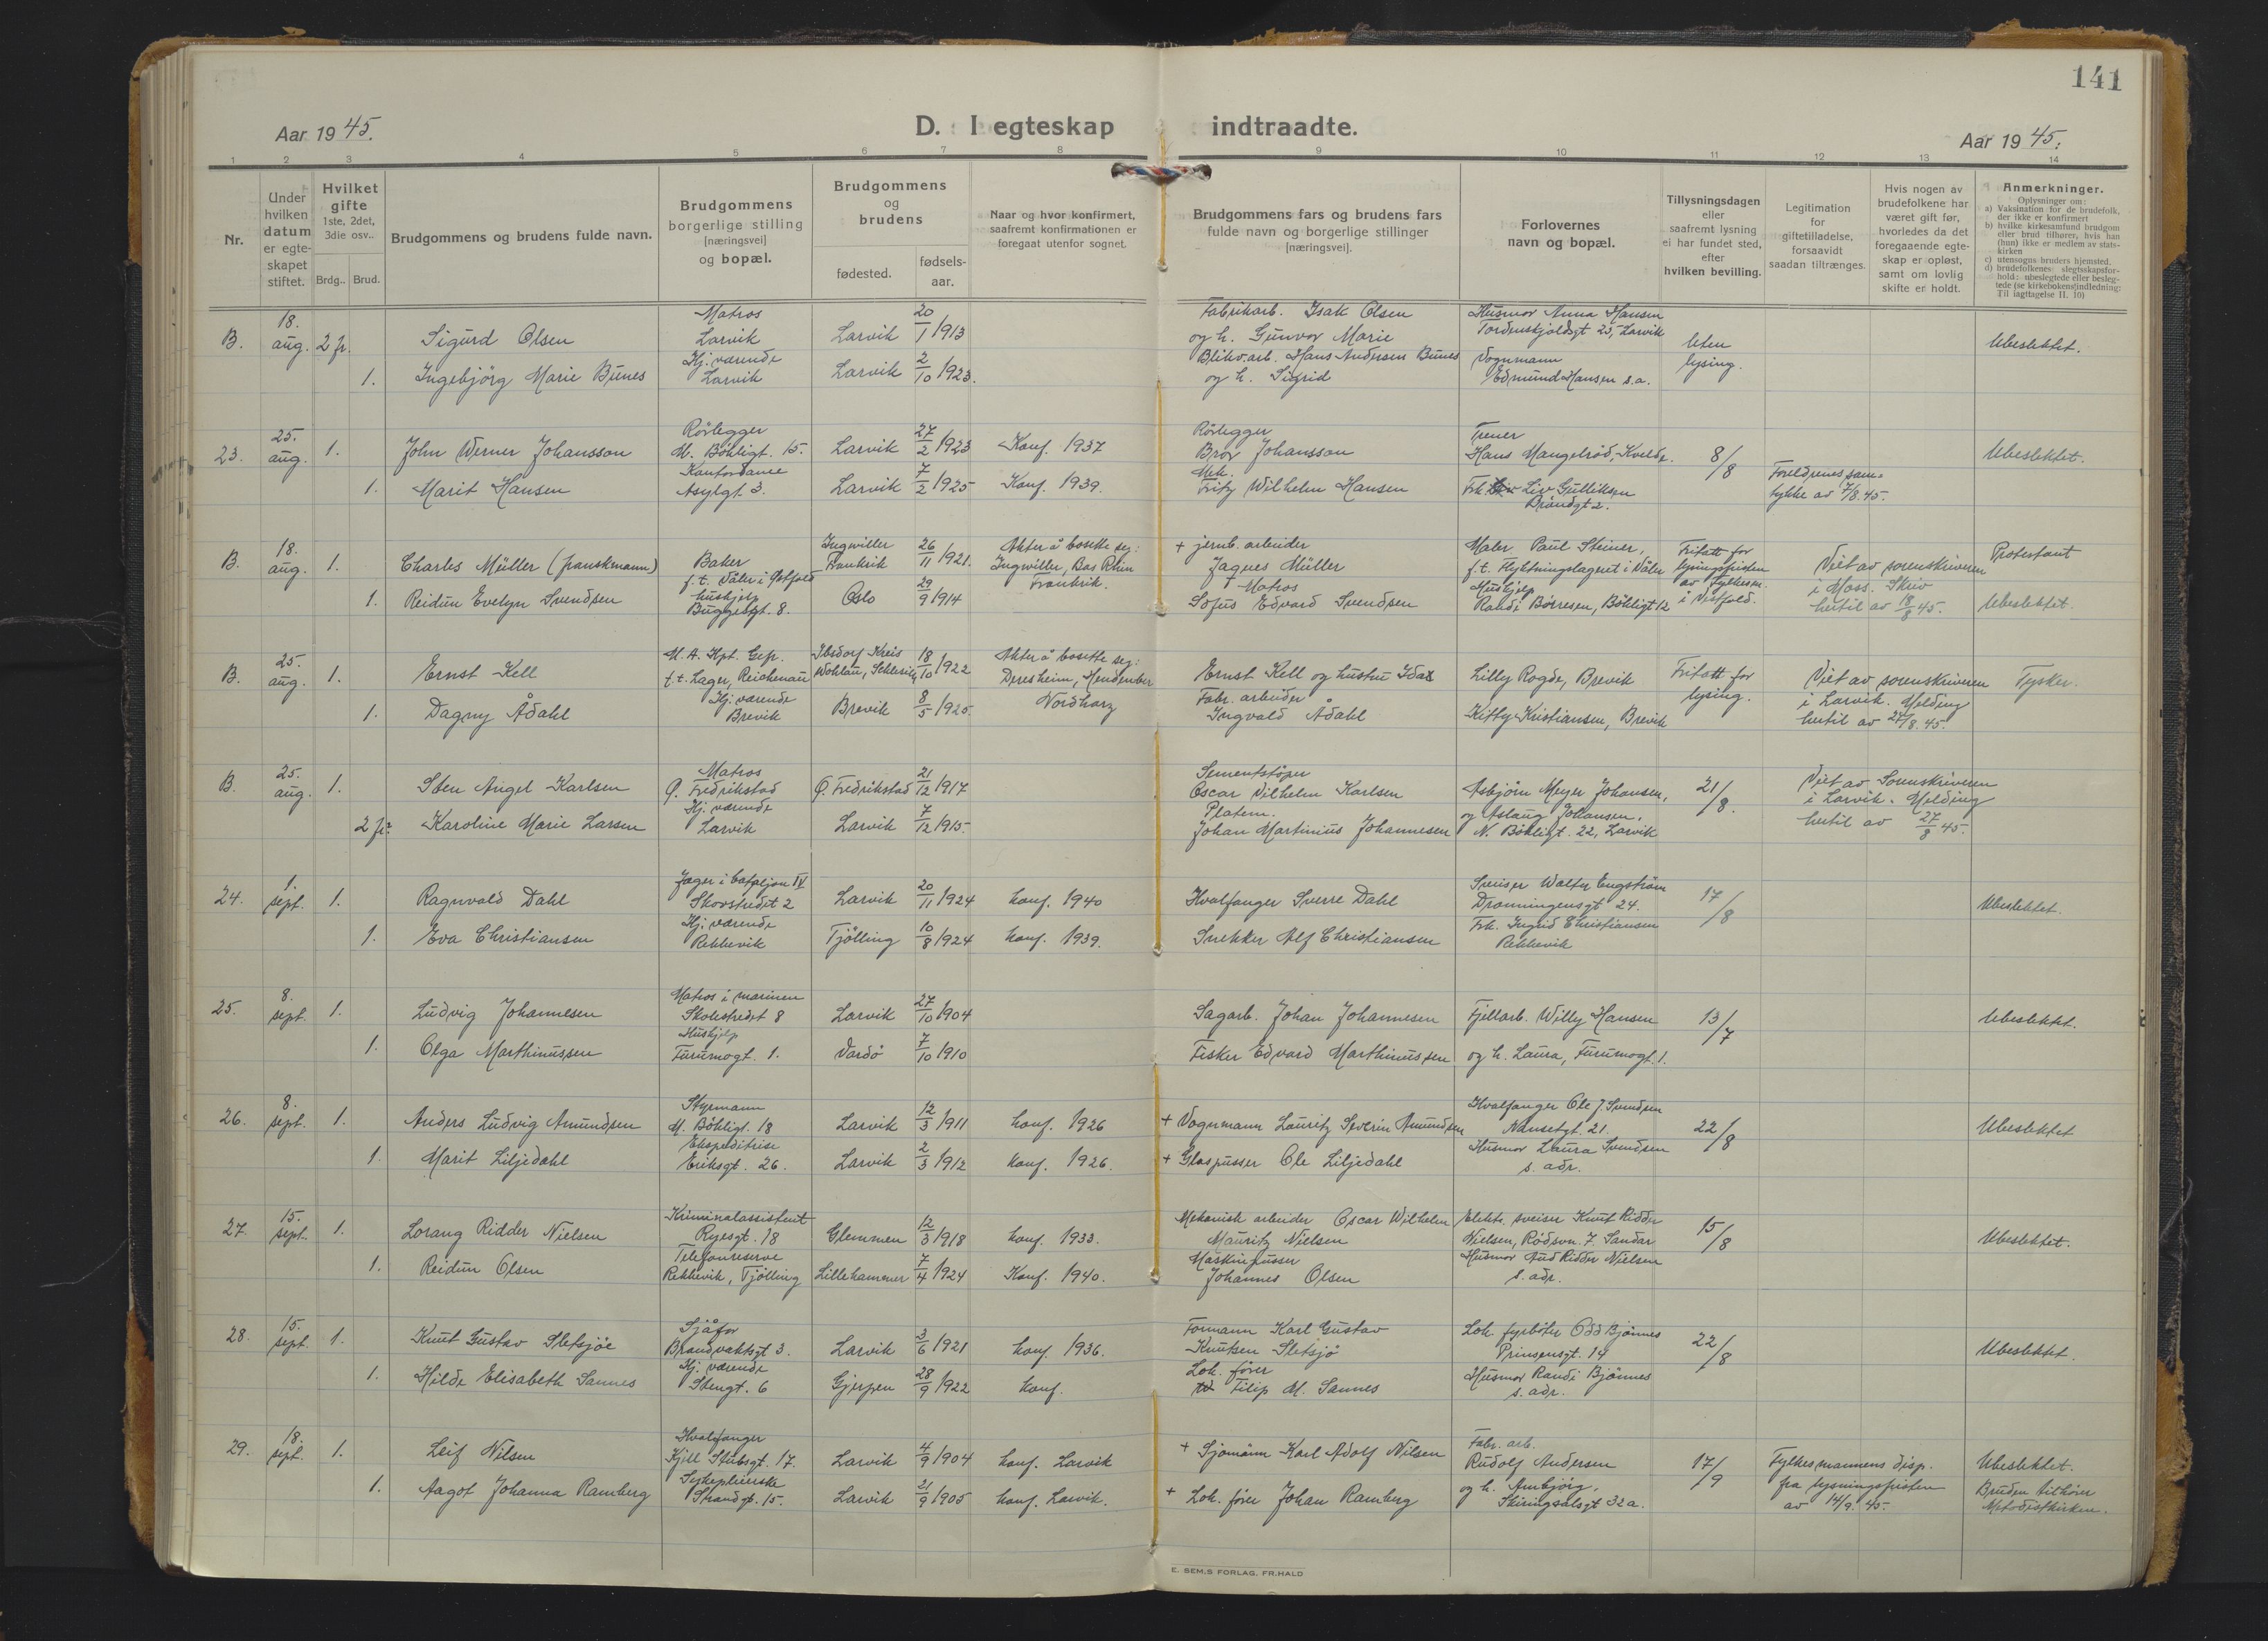 141
Aar 1945.
D. I egteskap indtraadte.
Aar 1945.
1 2 3 4 5 6 7 8 9 10 11 12 13 14
Nr.
Under hvilken datum er egte-skapet stiftet.
Hvilket gifte 1ste, 2det, 3die osv..
Brdg.. Brud.
Brudgommens og brudens fulde navn.
Brudgommens borgerlige stilling [næringsvei] og bopæl.
Brudgommens og brudens
fødested.
fødsels-aar.
Naar og hvor konfirmert, saafremt konfirmationen er foregaat utenfor sognet.
Brudgommens fars og brudens fars fulde navn og borgerlige stillinger [næringsvei].
Forlovernes navn og bopæl.
Tillysningsdagen eller saafremt lysning ei har fundet sted, efter hvilken bevilling.
Legitimation for giftetilladelse, forsaavidt saadan tiltrænges.
Hvis nogen av brudefolkene har været gift før, hvorledes da det foregaaende egte-skap er opløst, samt om lovlig skifte er holdt.
Anmerkninger.
Oplysninger om:
a) Vaksination for de brudefolk, der ikke er konfirmert
b) hvilke kirkesamfund brudgom eller brud tilhører, hvis han (hun) ikke er medlem av stats-kirken
c) utensogns bruders hjemsted.
d) brudefolkenes slegtsskapsfor-hold: ubeslegtede eller besleg-tede (se kirkebokens indledning: Til iagttagelse II. 10)
B. 18. aug. 2 fr. Sigurd Olsen Matros Larvik Larvik 20/1 1913 Fabrikarb. Isak Olsen og h. Gunvor Marie Husmor Anna Hansen Tordenskjoldsgt 25, Larvik Uten lysing. Ubeslektet.
1. Ingebjörg Marie Bunes Hj. værende Larvik Larvik 2/10 1923. Blikv.arb. Hans Andersen Bunes og h. Sigrid Vognmann Edmund Hansen s.a.
23. 25. aug. 1. John Werner Johansson Rörlegger M. Bökligt. 15. Larvik 27/2 1923 Konf. 1937 Rörlegger Johansson Hans Mangelröd, Kvelde. 8/8 Ubeslektet.
1. Marit Hansen Kontordame Asylgt. 3. Larvik 7/2 1925 Konf. 1939. Mek. Fritz Wilhelm Hansen Frk. Liv Gulliksen Foreldrenes sam-tykke av 7/8.45.
B. 18. aug. 1. Charles Müller (franskmann) Baker f.t. Våler i Östfold Ingwiller Frankrik 26/11 1921. Akter å bosette seg: Ingwiller, Bas Rhin Frankrik. + jernb. arbeider Jaques Müller Maler Paul Steiner, f.t. Flyktningslageret i Våler Fritatt for lysningsfristen av fylkesm. i Vestfold. Viet av sorenskriveren i Moss. Skriv hertil av 18/8 45. Protestant
1. Reidun Evelyn Svendsen hushjelp Buggesgt. 8. Oslo 29/9 1914 + Matros Sofus Edvard Svendsen Hushjelp Randi Börresen, Bökligt 12 Ubeslektet.
B. 25. aug. 1. Ernst Kell f.t. Lager, Reichenau Wohlau, Schlesien 18/10 1922 Akter å bosette seg: Deresheim, Nordharz Ernst Kell og hustru Ida Lilly Rogde, Brevik Fritatt for lysing. Viet av sorenskriveren i Larvik. Melding hertil av 27/8.45. Tysker.
1. Dagny Ådahl Hj. værende Brevik Brevik 8/5 1925. Fabr. arbeider Ingvald Ådahl Kitty Kristiansen, Brevik
B. 25. aug. 1. Sten Angel Karlsen Matros Ö. Fredrikstad Ö. Fredrikstad 21/12 1917 Sementstöper Oscar Vilhelm Karlsen Asbjörn Meyer Johansen, og Aslaug Johansen, N. Bökligt. 22, Larvik 21/8. Viet av Sorenskriveren i Larvik. Melding hertil av 27/8 45.
2 fr. Karoline Marie Larsen Hj. værende Larvik Larvik 7/12 1915. Platem. Johan Martinius Johannesen
24. 1. sept. 1. Ragnvald Dahl Jæger i bataljon IV Larvik 20/11 1924 konf. 1940 Hvalfanger Sverre Dahl Sveiser Walter Engström Dronningensgt 24. 17/8 Ubeslektet.
1. Eva Christiansen Hj. værende Rekkevik Tjölling 10/8 1924 konf. 1939. Snekker Alf Christiansen Frk. Ingrid Christiansen Rekkevik
25. 8. sept. 1. Ludvig Johannesen Matros i marinen Skolestredet 8 Larvik 27/10 1904 Sagarb. Johan Johannesen Fjellarb. Willy Hansen 13/7 Ubeslektet.
1. Olga Marthinussen Hushjelp Furumogt. 1. Vardö 7/10 1910 Fisker Edvard Marthinussen og h. Laura, Furumogt. 1.
26. 8. sept. 1. Anders Ludvig Amundsen Styrmann M. Bökligt. 18 Larvik 12/3 1911 konf. 1926 + Vognmann Lauritz Severin Amundsen Hvalfanger Ole J. Svendsen Nansetgt. 21. 22/8 Ubeslektet
1. Marit Liljedahl Ekspeditrise Eriksgt. 26. Larvik 2/3 1912 konf. 1926. + Glaspusser Ole Liljedahl Husmor Laura Svendsen s. adr.
27. 15. sept. 1. Lorang Ridder Nielsen Kriminalassistent Ryesgt. 18 Glemmen 12/3 1918 konf. 1933. Mekanisk arbeider Oscar Wilhelm Mauritz Nielsen Elektr. sveiser Knut Ridder Nielsen, Rödsvn. 7. Sandar 15/8 Ubeslektet.
1. Reidun Olsen Telefonreserve Rekkevik, Tjölling Lillehammer 7/4 1924 Konf. 1940. Maskinpusser Johannes Olsen Husmor Aud Ridder Nielsen s. adr.
28. 15. sept. 1. Knut Gustav Sletsjöe Sjåför Brandvaktsgt 3. Larvik 3/6 1921 konf. 1936. Formann Karl Gustav Knutsen Sletsjö Lok. fyrböter Odd Bjönnes Prinsensgt. 14 22/8 Ubeslektet.
1. Hilde Elisabeth Sannes Hj. værende Stengt. 6 Gjerpen 28/9 1922 konf. Lok. förer Filip M. Sannes Husmor Randi Bjönnes s. adr.
29. 18. sept. 1. Leif Nilsen Hvalfanger Kjell Stubsgt. 17. Larvik 4/9 1904 konf. Larvik + Sjömann Karl Adolf Nilsen Fabr. arb. Rudolf Andersen og h. Arnbjörg, Skiringsalsgt 32a. 17/9 Fylkesmannens disp. fra lysningsfristen av 14/9. 45. Ubeslektet.
1. Aagot Johanna Ramberg Sykepleierske Strandgt. 15. Larvik 21/9 1905 konf. Larvik. + Lok. förer Johan Ramberg Bruden tilhörer Metodistkirken.
E. SEM.S FORLAG. FR.HALD